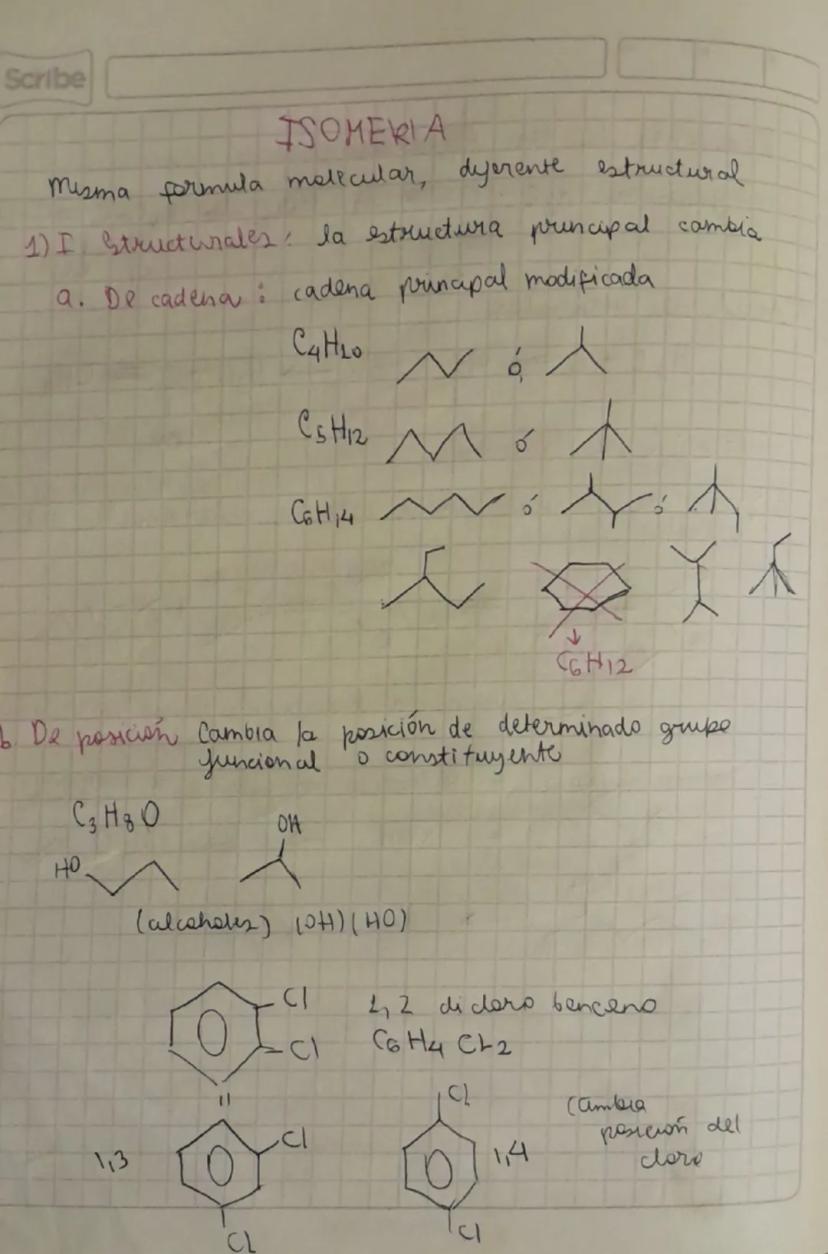 Scribe
ISOMERIA
Misma formula molecular, diferente estructural
1) I. Structurales: la estructura principal cambia
a. De cadena: cadena principal modificada
C4H10 ó
C5H12 ó
C6H14 ó ó
C6H12
b De posición Cambia la posición de determinado grupo
funcional o constituyente
C3H8O
OH
HO
(alcoholes) (OH) (HO)
Cl 1,2 dicloro benceno
Cl C6H4 Cl2
Cl
1,3 Cl
1,4
Cambia
posición del
cloro
Cl
Cl